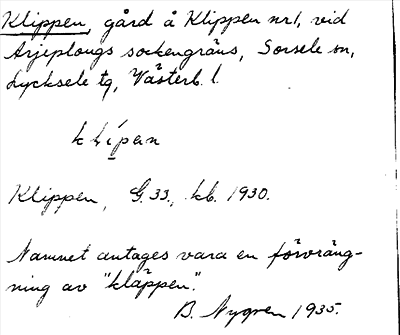 Klippen, gård å Klippen nr1, vid
Arjeplougs sockengräns, Sorsele sn,
Lycksele tg, Västerb. l.
klipen
Klippen, G. 33, kb. 1930.
Namnet antages vara en förvräng-
ning av "kläppen".
B. Nygren 1935.